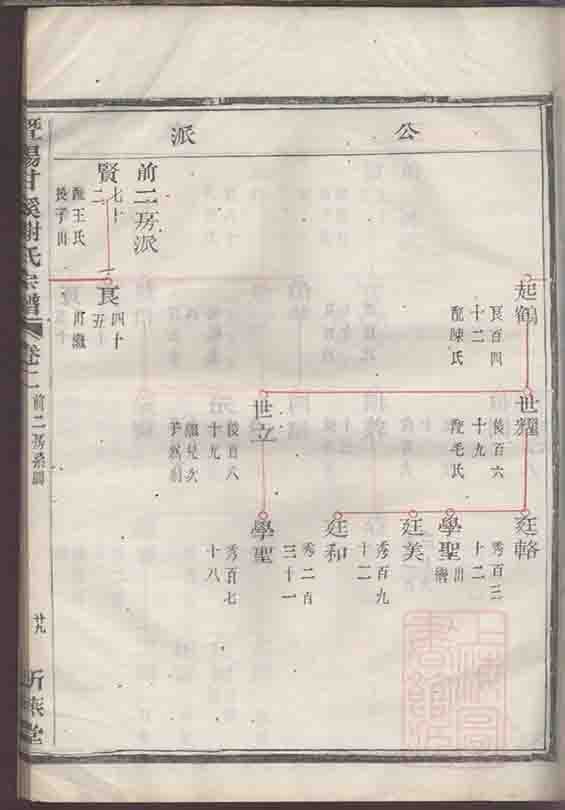 公派
起鶴
艮百四
十二
配陳氏
世耀
後百六
十九
配毛氏
廷輅
秀百三
十二
學聖
出
繼
廷美
秀百九
十二
廷和
秀二百
三十一
世立
後百八
十九
學聖
秀百七
十八
前二房派
賢
七十
二
配王氏
長子出
艮
四十
五
出繼
暨陽甘溪謝氏宗譜
卷二
前二房系圖
廿九